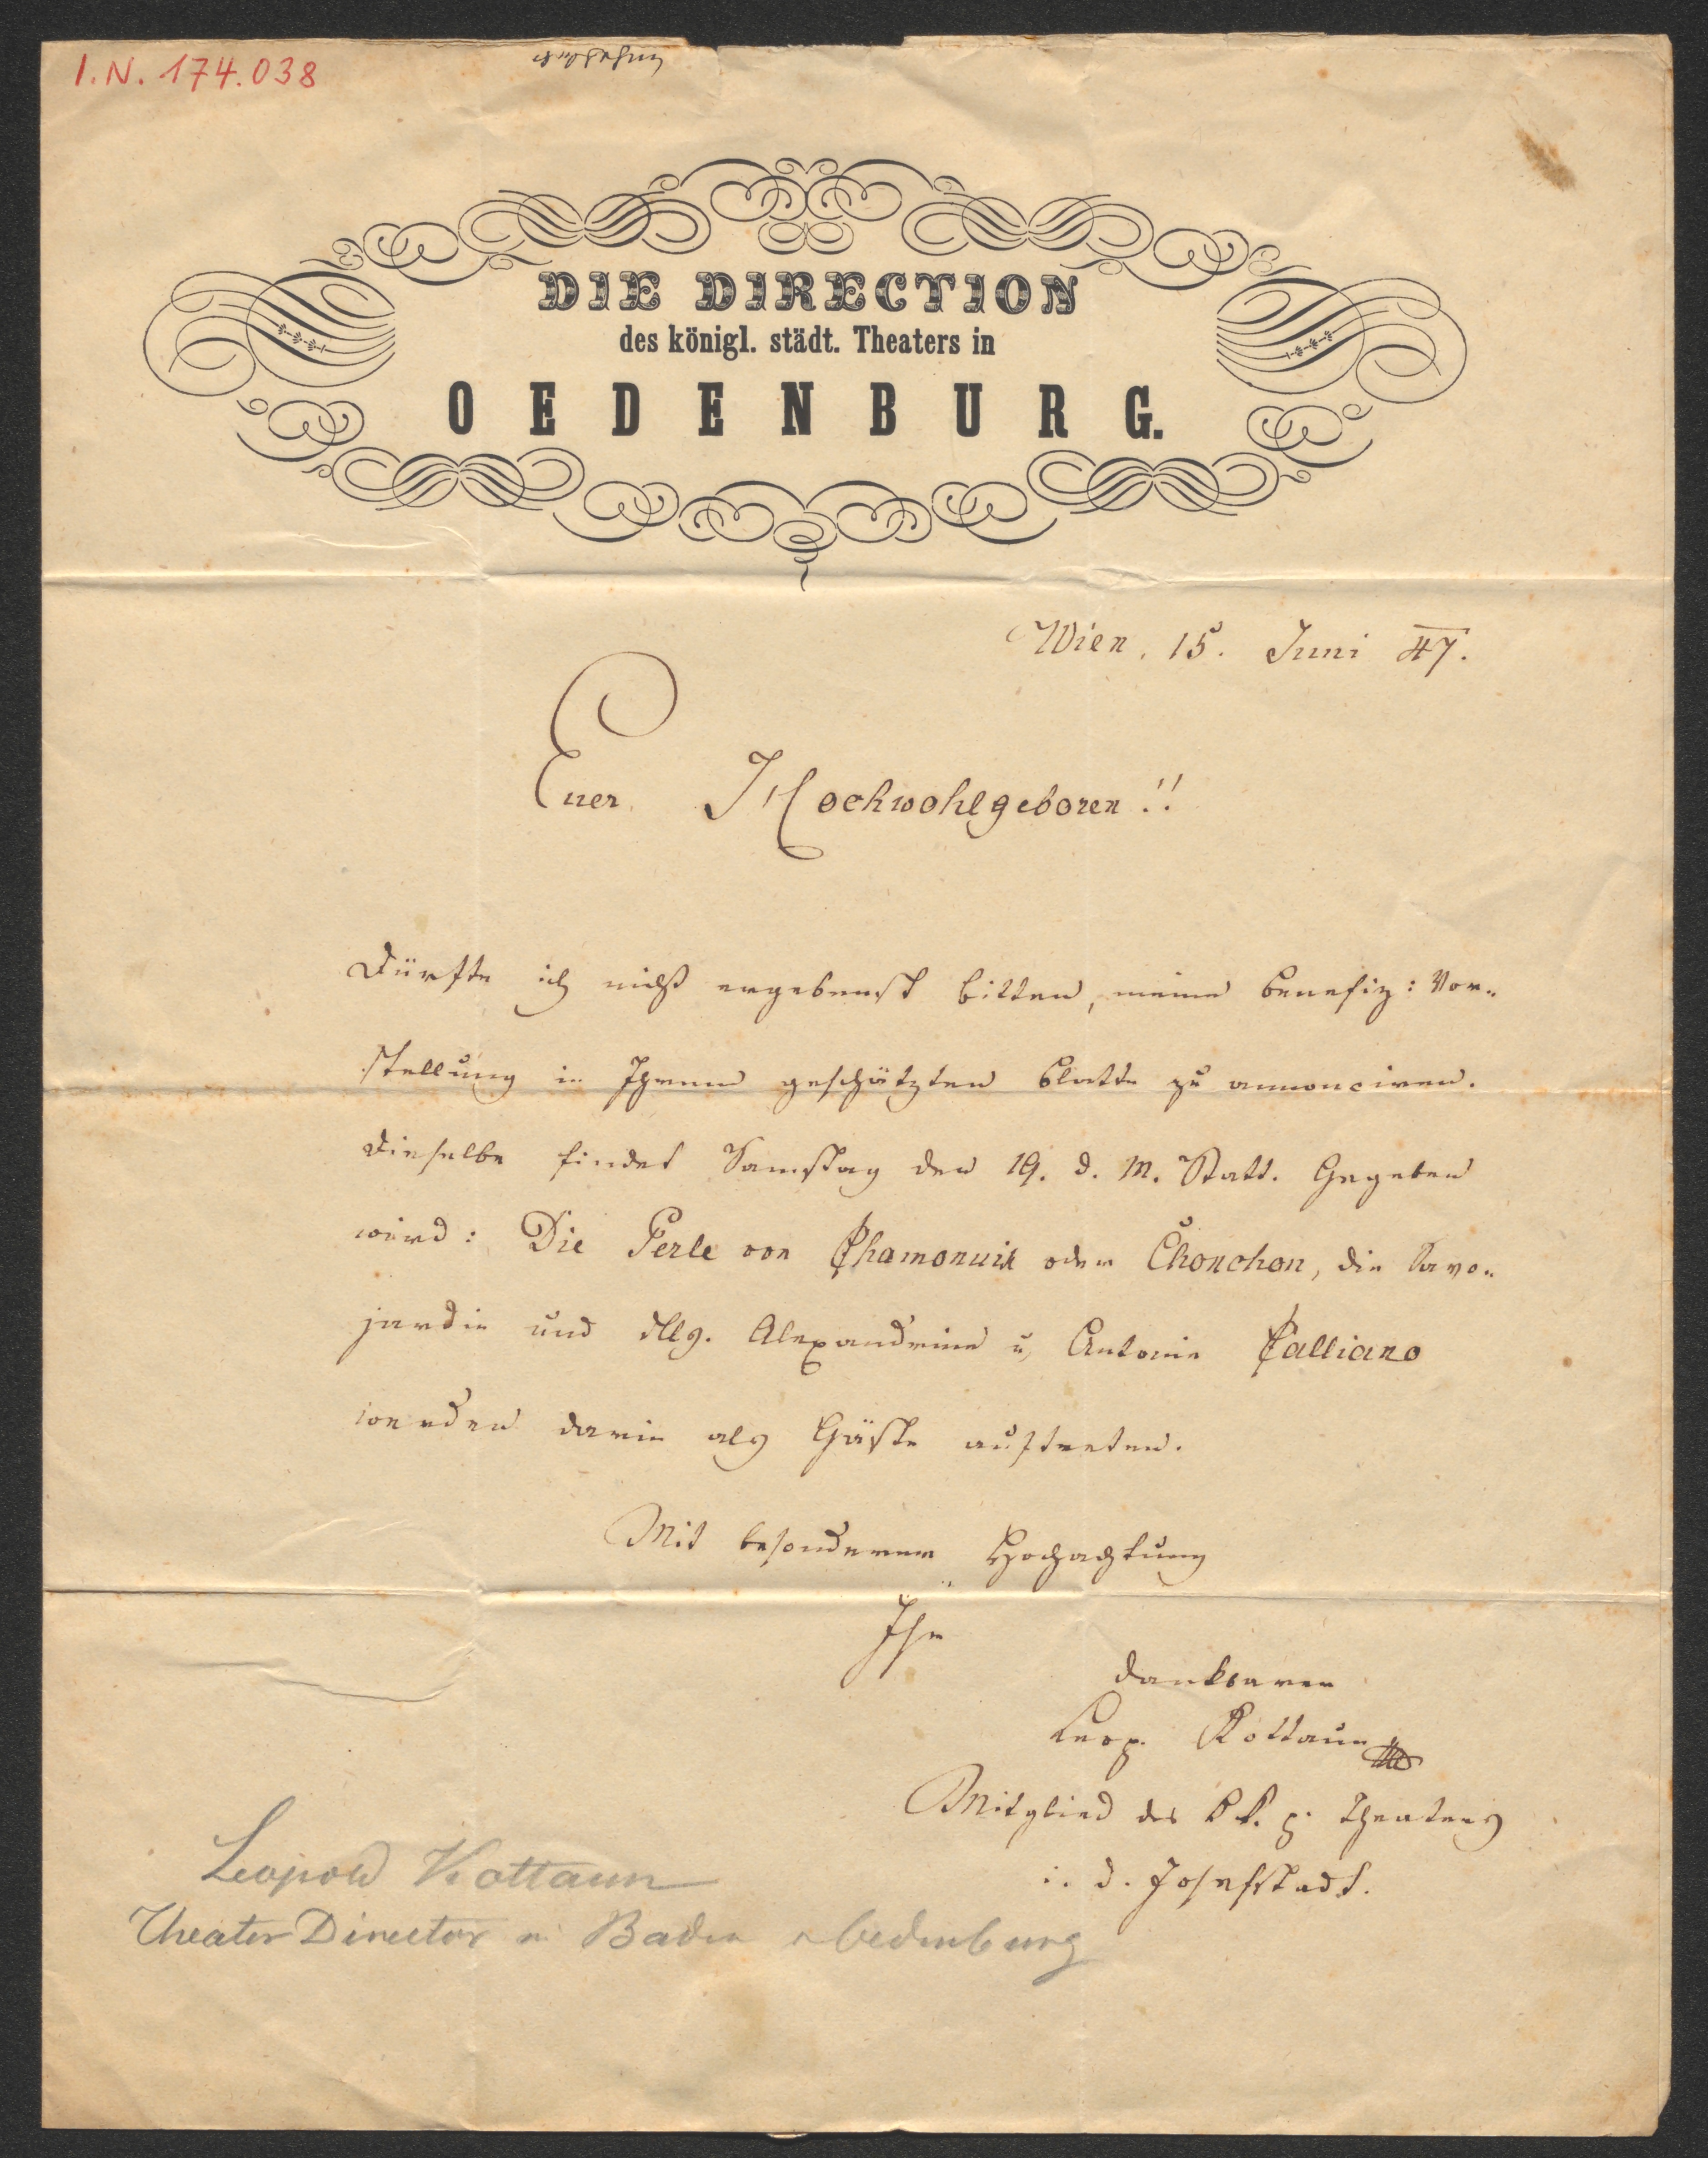 I.N. 174.038
DIE DIRECTION
des königl. städt. Theaters in
OEDENBURG.
Wien, 15. Juni 47.
Euer Hochwohlgeboren!!
Dürfte ich nicht ergebenst bitten, meine Benefiz: Vor-
stellung in Ihrem geschätzten Blatte zu annonciren.
Dieselbe findet Samstag den 19. d. M. Statt. Gegeben
wird: Die Perle von Chamonuix oder Chonchon, die Savo-
jardin und Dlls. Alexandrine u. Antonie Calliano
werden darin als Gäste auftreten.
Mit besonderer Hochachtung
Ihr
dankbarer
Leop. Kottaun
Mitglied des k. k. p. Theaters
i. d. Josefstadt.
Leopold Kottaun
Theater Director in Baden Oedenburg